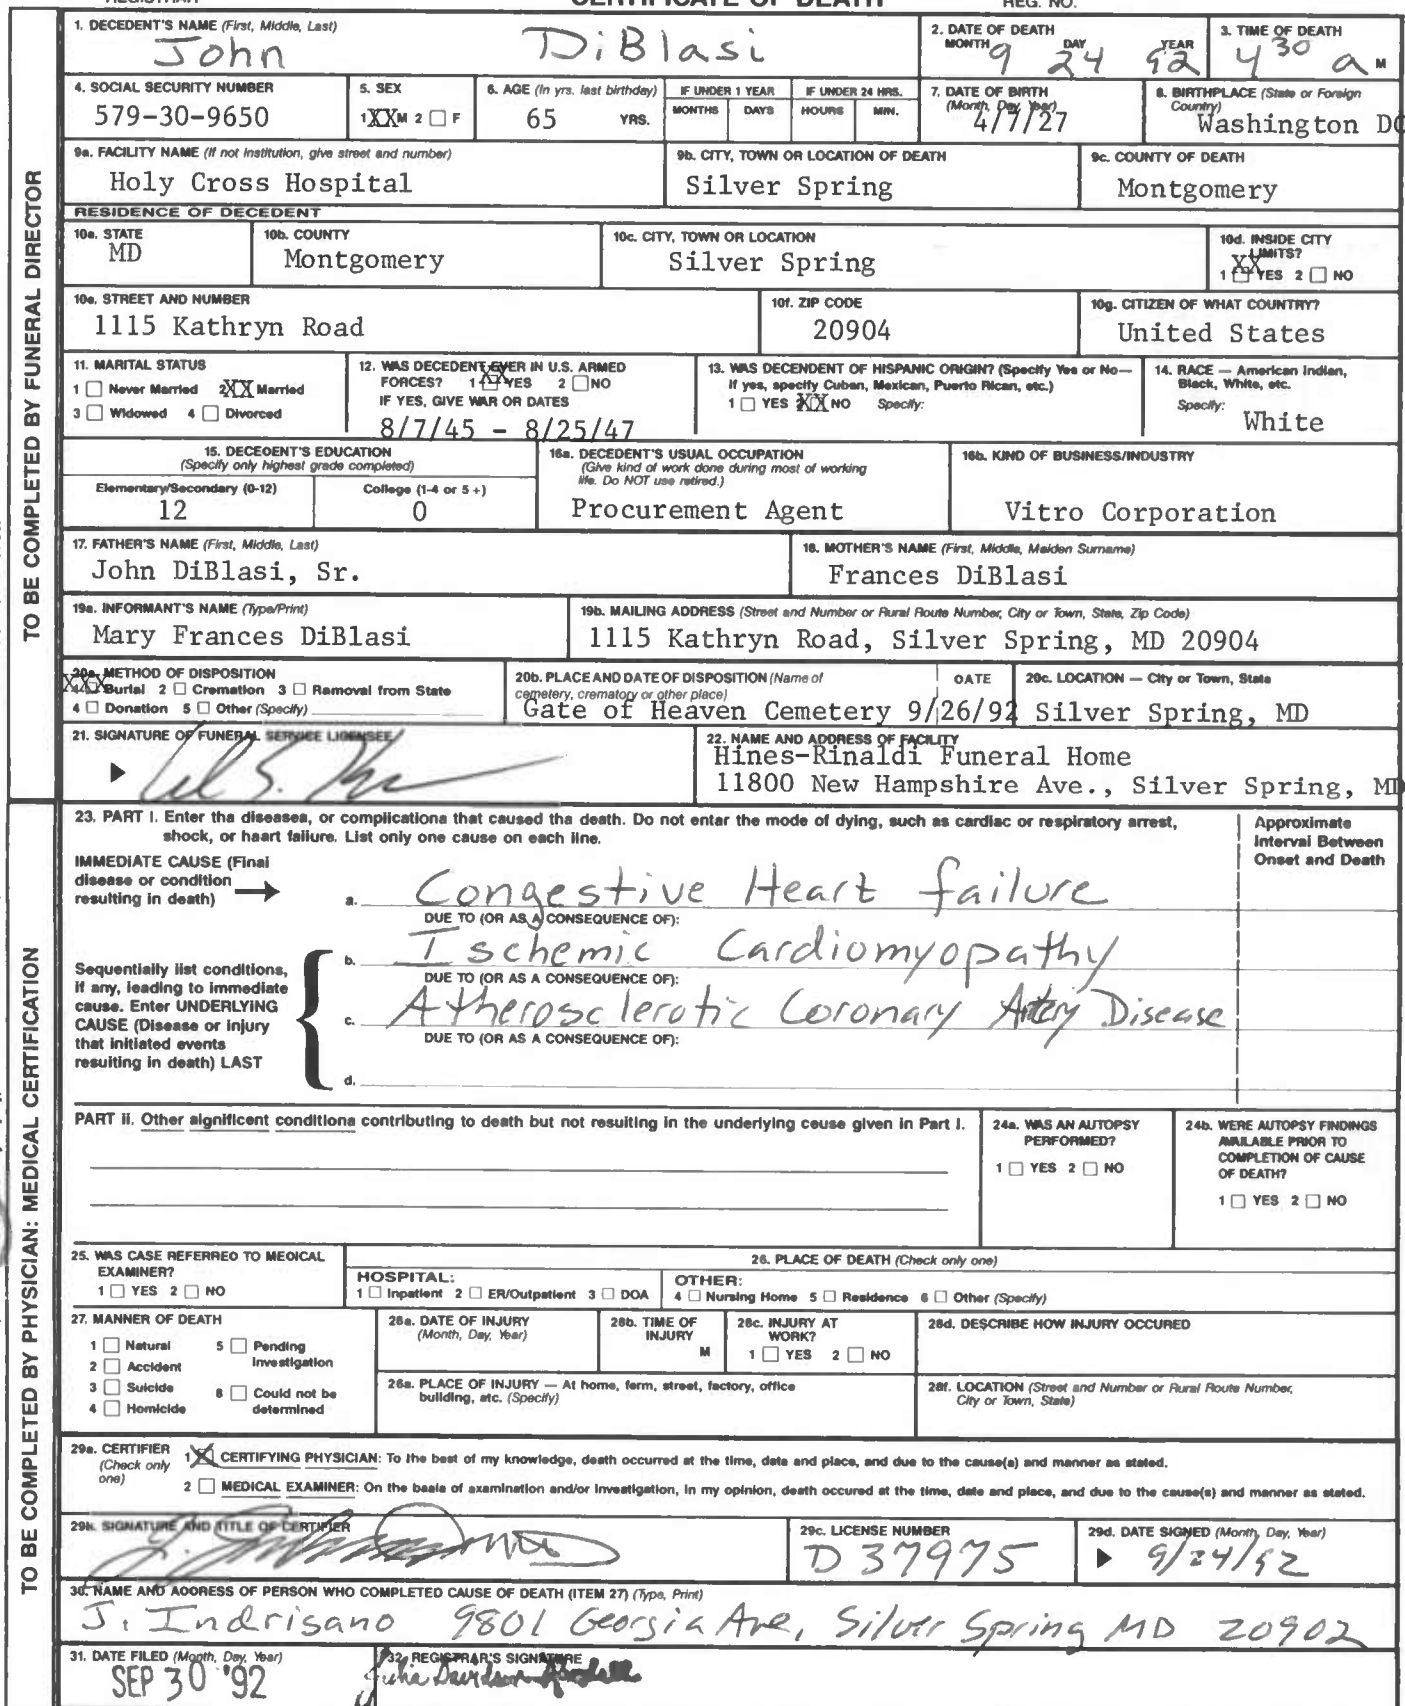 CERTIFICATE OF DEATH
REGISTRAR
REG. NO.
TO BE COMPLETED BY FUNERAL DIRECTOR
1. DECEDENT'S NAME (First, Middle, Last)
John DiBlasi
2. DATE OF DEATH
MONTH DAY YEAR
9 24 92
3. TIME OF DEATH
4 30 a M
4. SOCIAL SECURITY NUMBER
579-30-9650
5. SEX
1 XX M 2 ☐ F
6. AGE (In yrs. last birthday)
65 YRS.
IF UNDER 1 YEAR
MONTHS DAYS
IF UNDER 24 HRS.
HOURS MIN.
7. DATE OF BIRTH
(Month, Day, Year)
4/7/27
8. BIRTHPLACE (State or Foreign
Country)
Washington DC
9a. FACILITY NAME (If not institution, give street and number)
Holy Cross Hospital
9b. CITY, TOWN OR LOCATION OF DEATH
Silver Spring
9c. COUNTY OF DEATH
Montgomery
RESIDENCE OF DECEDENT
10a. STATE
MD
10b. COUNTY
Montgomery
10c. CITY, TOWN OR LOCATION
Silver Spring
10d. INSIDE CITY
LIMITS?
XX
1 ☐ YES 2 ☐ NO
10e. STREET AND NUMBER
1115 Kathryn Road
10f. ZIP CODE
20904
10g. CITIZEN OF WHAT COUNTRY?
United States
11. MARITAL STATUS
1 ☐ Never Married 2 XX Married
3 ☐ Widowed 4 ☐ Divorced
12. WAS DECEDENT EVER IN U.S. ARMED
FORCES? 1 XX YES 2 ☐ NO
IF YES, GIVE WAR OR DATES
8/7/45 - 8/25/47
13. WAS DECENDENT OF HISPANIC ORIGIN? (Specify Yes or No—
If yes, specify Cuban, Mexican, Puerto Rican, etc.)
1 ☐ YES 2 XX NO Specify:
14. RACE — American Indian,
Black, White, etc.
Specify:
White
15. DECEDENT'S EDUCATION
(Specify only highest grade completed)
Elementary/Secondary (0-12)
12
College (1-4 or 5 +)
0
16a. DECEDENT'S USUAL OCCUPATION
(Give kind of work done during most of working
life. Do NOT use retired.)
Procurement Agent
16b. KIND OF BUSINESS/INDUSTRY
Vitro Corporation
17. FATHER'S NAME (First, Middle, Last)
John DiBlasi, Sr.
18. MOTHER'S NAME (First, Middle, Maiden Surname)
Frances DiBlasi
19a. INFORMANT'S NAME (Type/Print)
Mary Frances DiBlasi
19b. MAILING ADDRESS (Street and Number or Rural Route Number, City or Town, State, Zip Code)
1115 Kathryn Road, Silver Spring, MD 20904
20a. METHOD OF DISPOSITION
XXX Burial 2 ☐ Cremation 3 ☐ Removal from State
4 ☐ Donation 5 ☐ Other (Specify)
20b. PLACE AND DATE OF DISPOSITION (Name of
cemetery, crematory or other place)
DATE
Gate of Heaven Cemetery 9/26/92
20c. LOCATION — City or Town, State
Silver Spring, MD
21. SIGNATURE OF FUNERAL SERVICE LICENSEE
22. NAME AND ADDRESS OF FACILITY
Hines-Rinaldi Funeral Home
11800 New Hampshire Ave., Silver Spring, MD
TO BE COMPLETED BY PHYSICIAN: MEDICAL CERTIFICATION
23. PART I. Enter the diseases, or complications that caused the death. Do not enter the mode of dying, such as cardiac or respiratory arrest,
shock, or heart failure. List only one cause on each line.
Approximate
Interval Between
Onset and Death
IMMEDIATE CAUSE (Final
disease or condition
resulting in death)
a. Congestive Heart failure
DUE TO (OR AS A CONSEQUENCE OF):
b. Ischemic Cardiomyopathy
DUE TO (OR AS A CONSEQUENCE OF):
c. Atherosclerotic Coronary Artery Disease
DUE TO (OR AS A CONSEQUENCE OF):
d.
Sequentially list conditions,
if any, leading to immediate
cause. Enter UNDERLYING
CAUSE (Disease or injury
that initiated events
resulting in death) LAST
PART II. Other significent conditions contributing to death but not resulting in the underlying cause given in Part I.
24a. WAS AN AUTOPSY
PERFORMED?
1 ☐ YES 2 ☐ NO
24b. WERE AUTOPSY FINDINGS
AVAILABLE PRIOR TO
COMPLETION OF CAUSE
OF DEATH?
1 ☐ YES 2 ☐ NO
25. WAS CASE REFERRED TO MEDICAL
EXAMINER?
1 ☐ YES 2 ☐ NO
26. PLACE OF DEATH (Check only one)
HOSPITAL:
1 ☐ Inpatient 2 ☐ ER/Outpatient 3 ☐ DOA
OTHER:
4 ☐ Nursing Home 5 ☐ Residence 6 ☐ Other (Specify)
27. MANNER OF DEATH
1 ☐ Natural 5 ☐ Pending
Investigation
2 ☐ Accident
3 ☐ Suicide 6 ☐ Could not be
determined
4 ☐ Homicide
28a. DATE OF INJURY
(Month, Day, Year)
28b. TIME OF
INJURY
M
28c. INJURY AT
WORK?
1 ☐ YES 2 ☐ NO
28d. DESCRIBE HOW INJURY OCCURED
28e. PLACE OF INJURY — At home, farm, street, factory, office
building, etc. (Specify)
28f. LOCATION (Street and Number or Rural Route Number,
City or Town, State)
29a. CERTIFIER
(Check only
one)
1 X CERTIFYING PHYSICIAN: To the best of my knowledge, death occurred at the time, date and place, and due to the cause(s) and manner as stated.
2 ☐ MEDICAL EXAMINER: On the basis of examination and/or investigation, in my opinion, death occured at the time, date and place, and due to the cause(s) and manner as stated.
29b. SIGNATURE AND TITLE OF CERTIFIER
MD
29c. LICENSE NUMBER
D 37975
29d. DATE SIGNED (Month, Day, Year)
9/24/92
30. NAME AND ADDRESS OF PERSON WHO COMPLETED CAUSE OF DEATH (ITEM 27) (Type, Print)
J. Indrisano 9801 Georgia Ave, Silver Spring MD 20902
31. DATE FILED (Month, Day, Year)
SEP 30 '92
32. REGISTRAR'S SIGNATURE
Julia Davidson